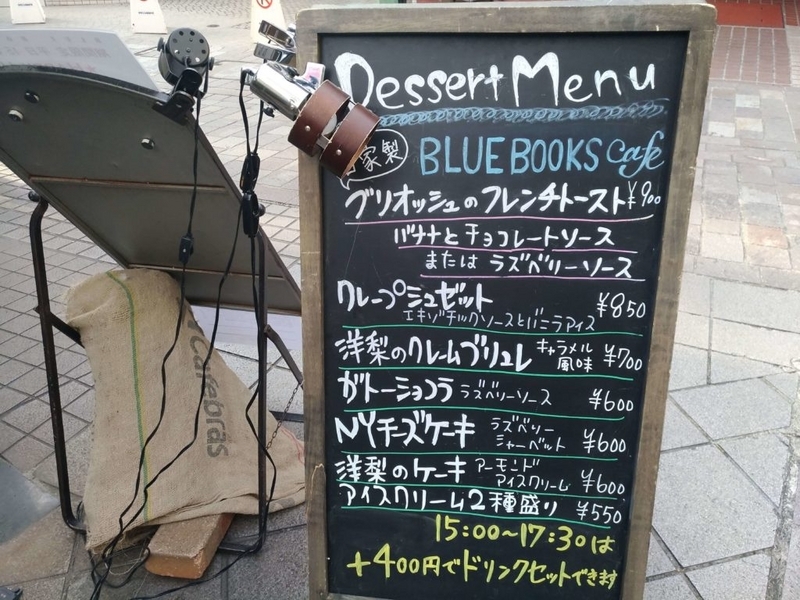 Dessert Menu
自家製 BLUE BOOKS cafe
ブリオッシュのフレンチトースト ¥900
バナナとチョコレートソース
または ラズベリーソース
クレープシュゼット ¥850
エキゾチックソースとバニラアイス
洋梨のクレームブリュレ キャラメル風味 ¥700
ガトーショコラ ラズベリーソース ¥600
NYチーズケーキ ラズベリーシャーベット ¥600
洋梨のケーキ アーモンドアイスクリーム ¥600
アイスクリーム2種盛り ¥550
15:00〜17:30は
+400円でドリンクセットできます
Cafebrás